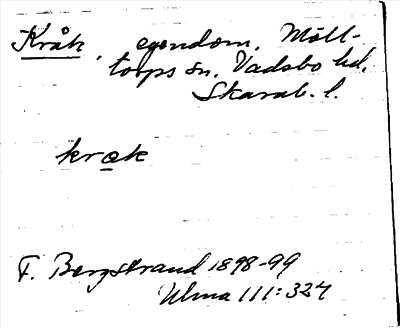 Kråk, egendom, Möll-
torps sn, Vadsbo hd,
Skarab. l.
kråk
F. Bergstrand 1898-99
Ulma 111:324